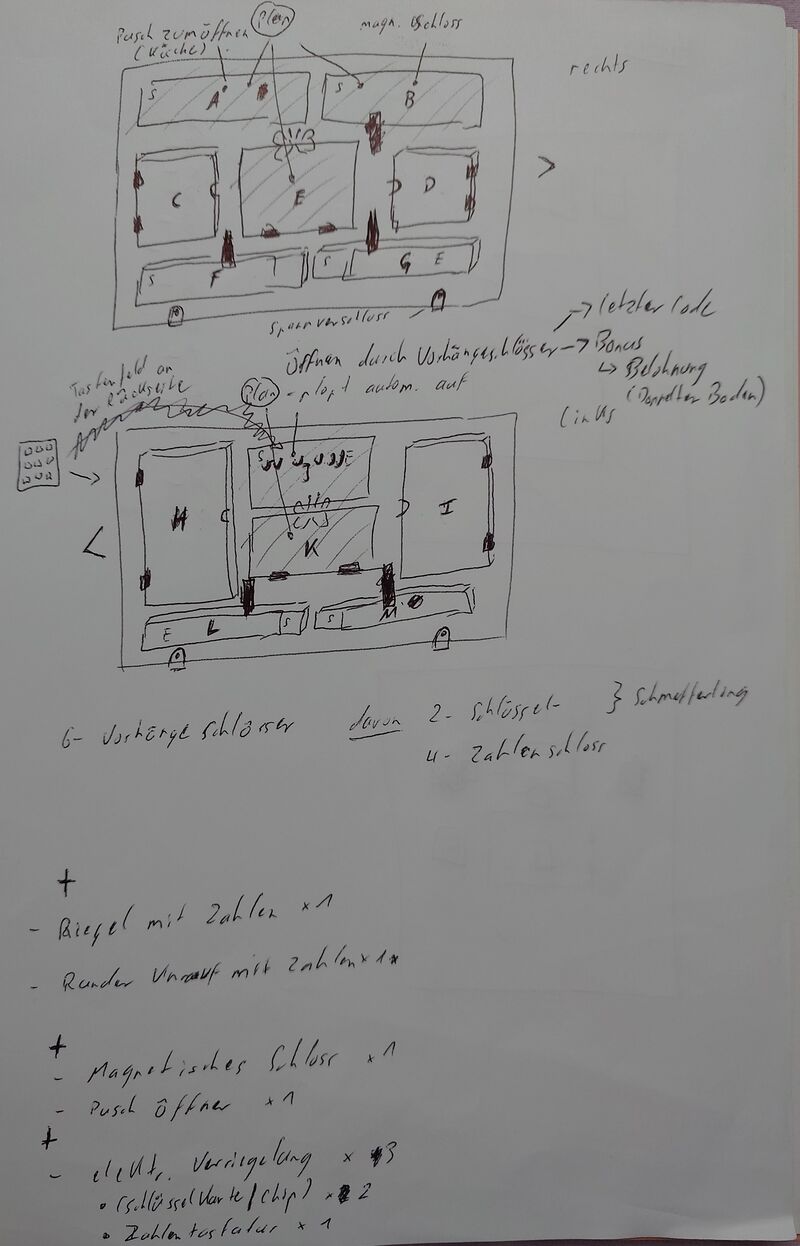 Pusch zum öffnen
(Küche)
Plan
magn. Schloss
rechts
S A
S B
C E D
>
S F
S G E
Spannverschluss
Öffnen durch Vorhängeschlösser → Bonus
→ letzter Code
↳ Belohnung
(Doppelter Boden)
Tastenfeld an
der Rückseite
Plan - plopt autom. auf
links
S J E
H K I
<
E L S
S M
6- Vorhänge schlösser davon 2- Schlüssel- } Schmetterling
4- Zahlenschloss
+
- Riegel mit Zahlen x 1
- Runder mit Zahlen x 1
+
- Magnetisches Schloss x 1
- Pusch Öffner x 1
+
- elektr. Verriegelung x 3
• (Schlüssel Karte / Chip) x 2
• Zahlentastatur x 1